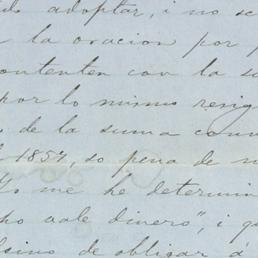 adoptar, i no se
la oracion por p
contenten con la su
por lo mismo resig
de la suma conv
1857, so pena de n
Yo me he determin
ho vale dinero", i q
de obligar á